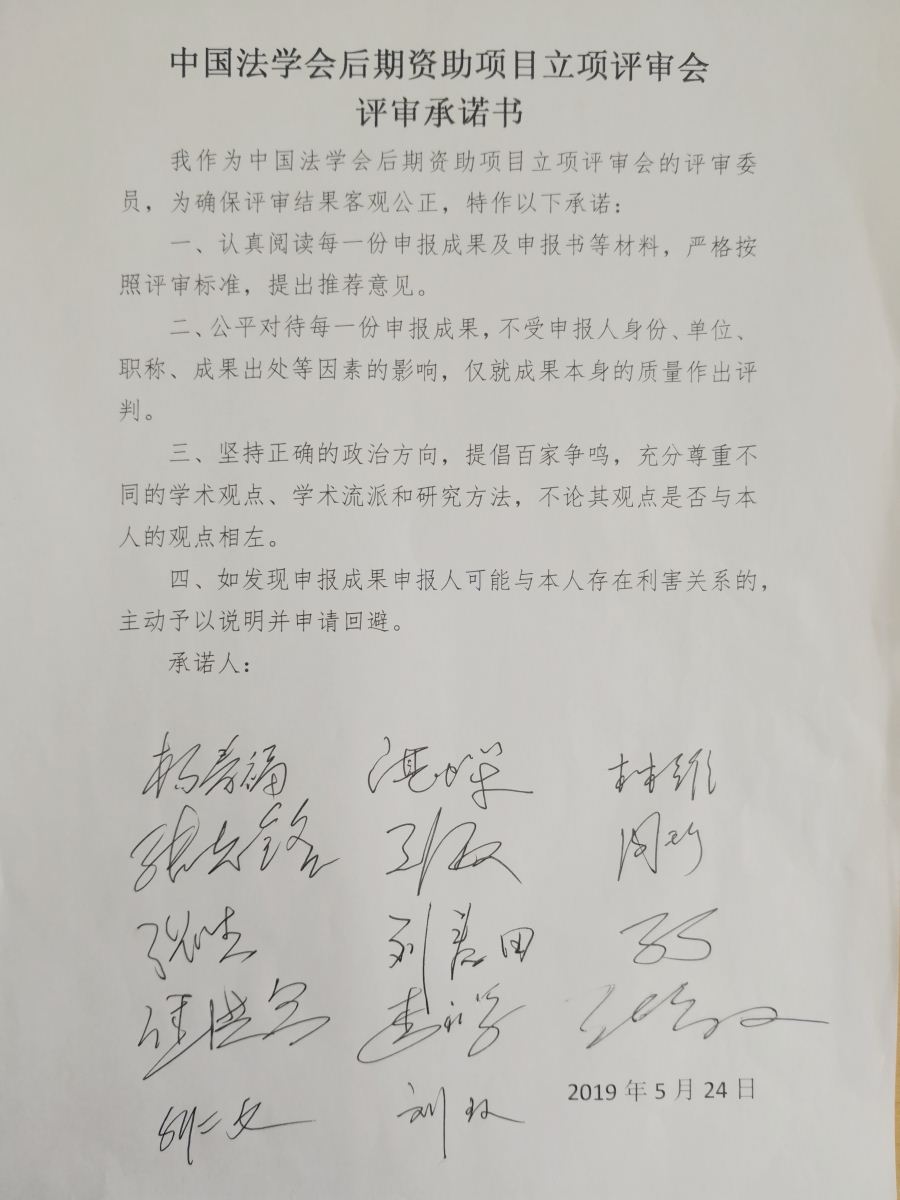 中国法学会后期资助项目立项评审会
评审承诺书
我作为中国法学会后期资助项目立项评审会的评审委
员，为确保评审结果客观公正，特作以下承诺：
一、认真阅读每一份申报成果及申报书等材料，严格按
照评审标准，提出推荐意见。
二、公平对待每一份申报成果，不受申报人身份、单位、
职称、成果出处等因素的影响，仅就成果本身的质量作出评
判。
三、坚持正确的政治方向，提倡百家争鸣，充分尊重不
同的学术观点、学术流派和研究方法，不论其观点是否与本
人的观点相左。
四、如发现申报成果申报人可能与本人存在利害关系的，
主动予以说明并申请回避。
承诺人：
林维
2019 年 5 月 24 日